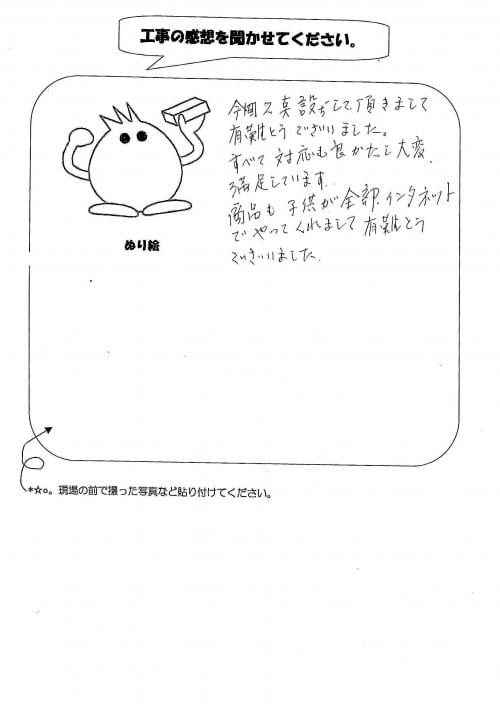 工事の感想を聞かせてください。
今畑ス真設ぢして頂きまして
有難とうございました。
すべて対応も良かたし大変
満足しています.
商品も子供が全部インタネット
でやってくれまして有難とう
ございました.
ぬり絵
*☆o。現場の前で撮った写真など貼り付けてください。